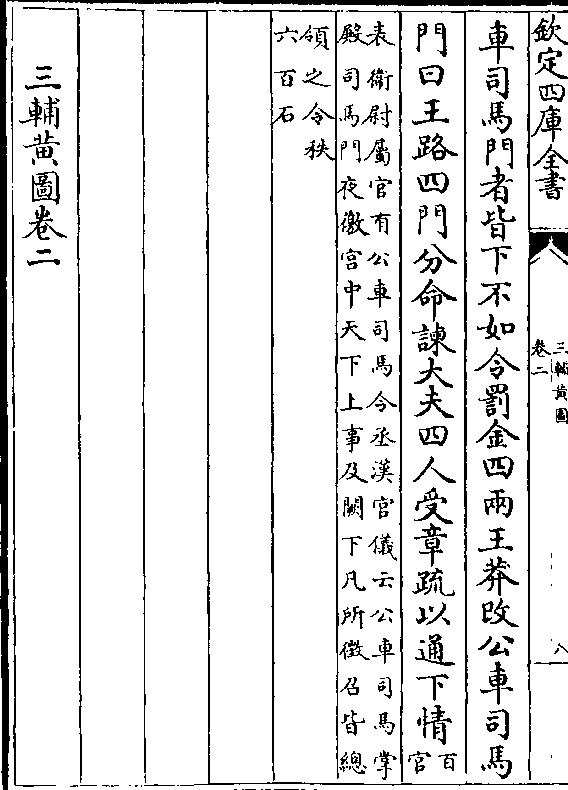 欽定四庫全書
三輔黄圖
卷二
八
車司馬門者皆下不如令罰金四兩王莽改公車司馬
門曰王路四門分命諫大夫四人受章疏以通下情
百
官
表衛尉屬官有公車司馬令丞漢官儀云公車司馬掌
殿司馬門夜徼宫中天下上事及闕下凡所徵召皆總
領之令秩
六百石
三輔黄圖卷二